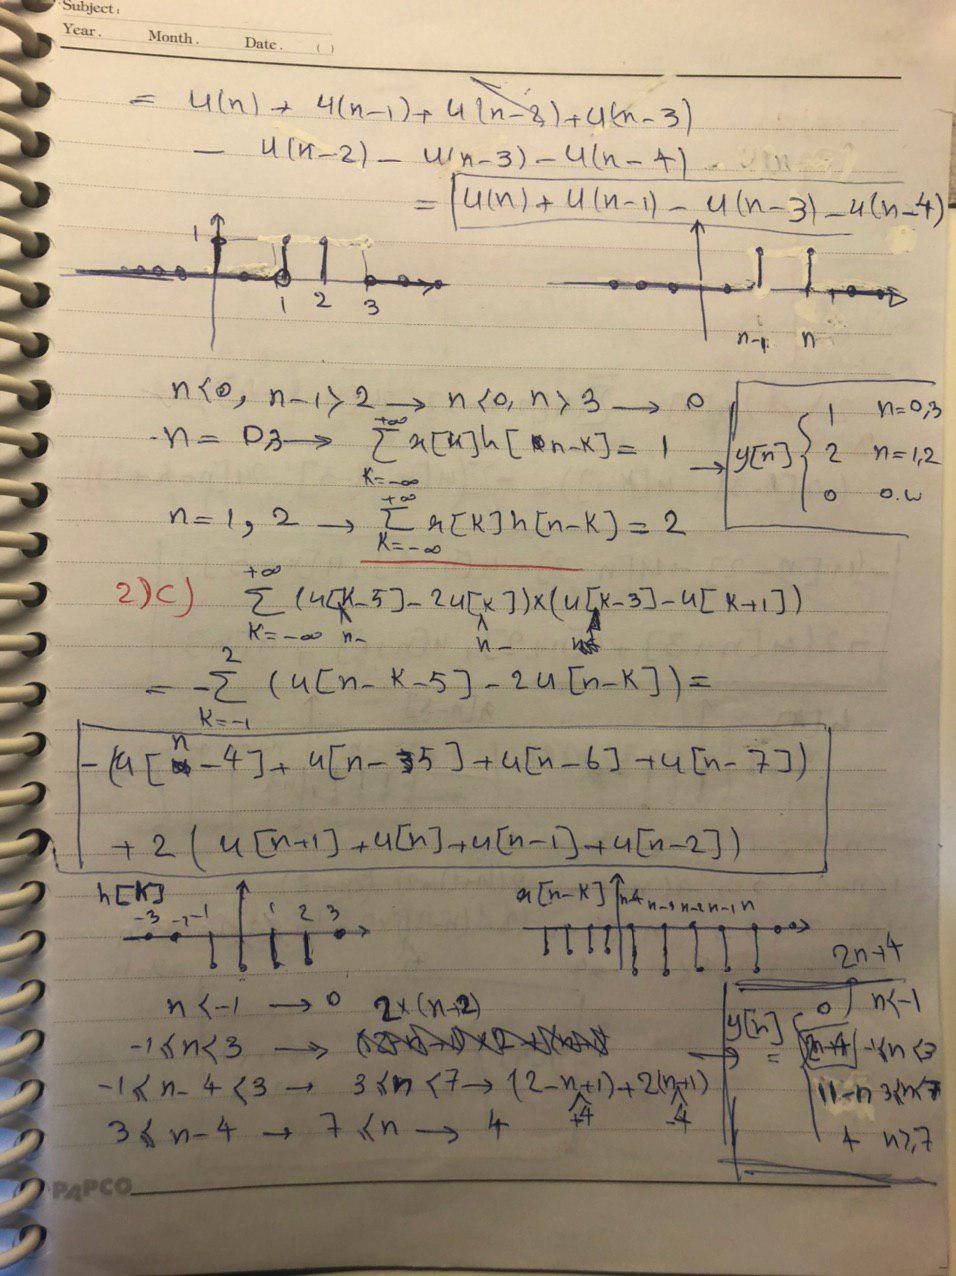 Subject:
Year. Month. Date. ( )
= u(n) + u(n-1) + u(n-2) + u(n-3)
- u(n-2) - u(n-3) - u(n-4)
= u(n) + u(n-1) - u(n-3) - u(n-4)
1
1 2 3
n-1 n
n<0, n-1>2 → n<0, n>3 → 0
-n = 0,3 → +∞ Σ K=-∞ x[K]h[n-K] = 1
n = 1, 2 → +∞ Σ K=-∞ x[K]h[n-K] = 2
→ y[n] { 1 n=0,3
2 n=1,2
0 o.w
2)c) +∞ Σ K=-∞ (u[K-5] - 2u[K])×(u[K-3] - u[K+1])
n- n-
= - 2 Σ K=-1 (u[n-K-5] - 2u[n-K]) =
-(u[n-4] + u[n-5] + u[n-6] + u[n-7])
+ 2(u[n+1] + u[n] + u[n-1] + u[n-2])
h[K] -3 -2 -1 1 2 3
x[n-K] n-4 n-3 n-2 n-1 n
n<-1 → 0 2×(n+2)
-1≤n<3 →
-1≤n-4<3 → 3≤n<7 → (2-n+1) + 2(n+1)
+4 -4
3≤n-4 → 7≤n → 4
2n+4
→ y[n] = { 0 n<-1
2n+4 -1≤n<3
11-n 3≤n<7
4 n≥7
PAPCO